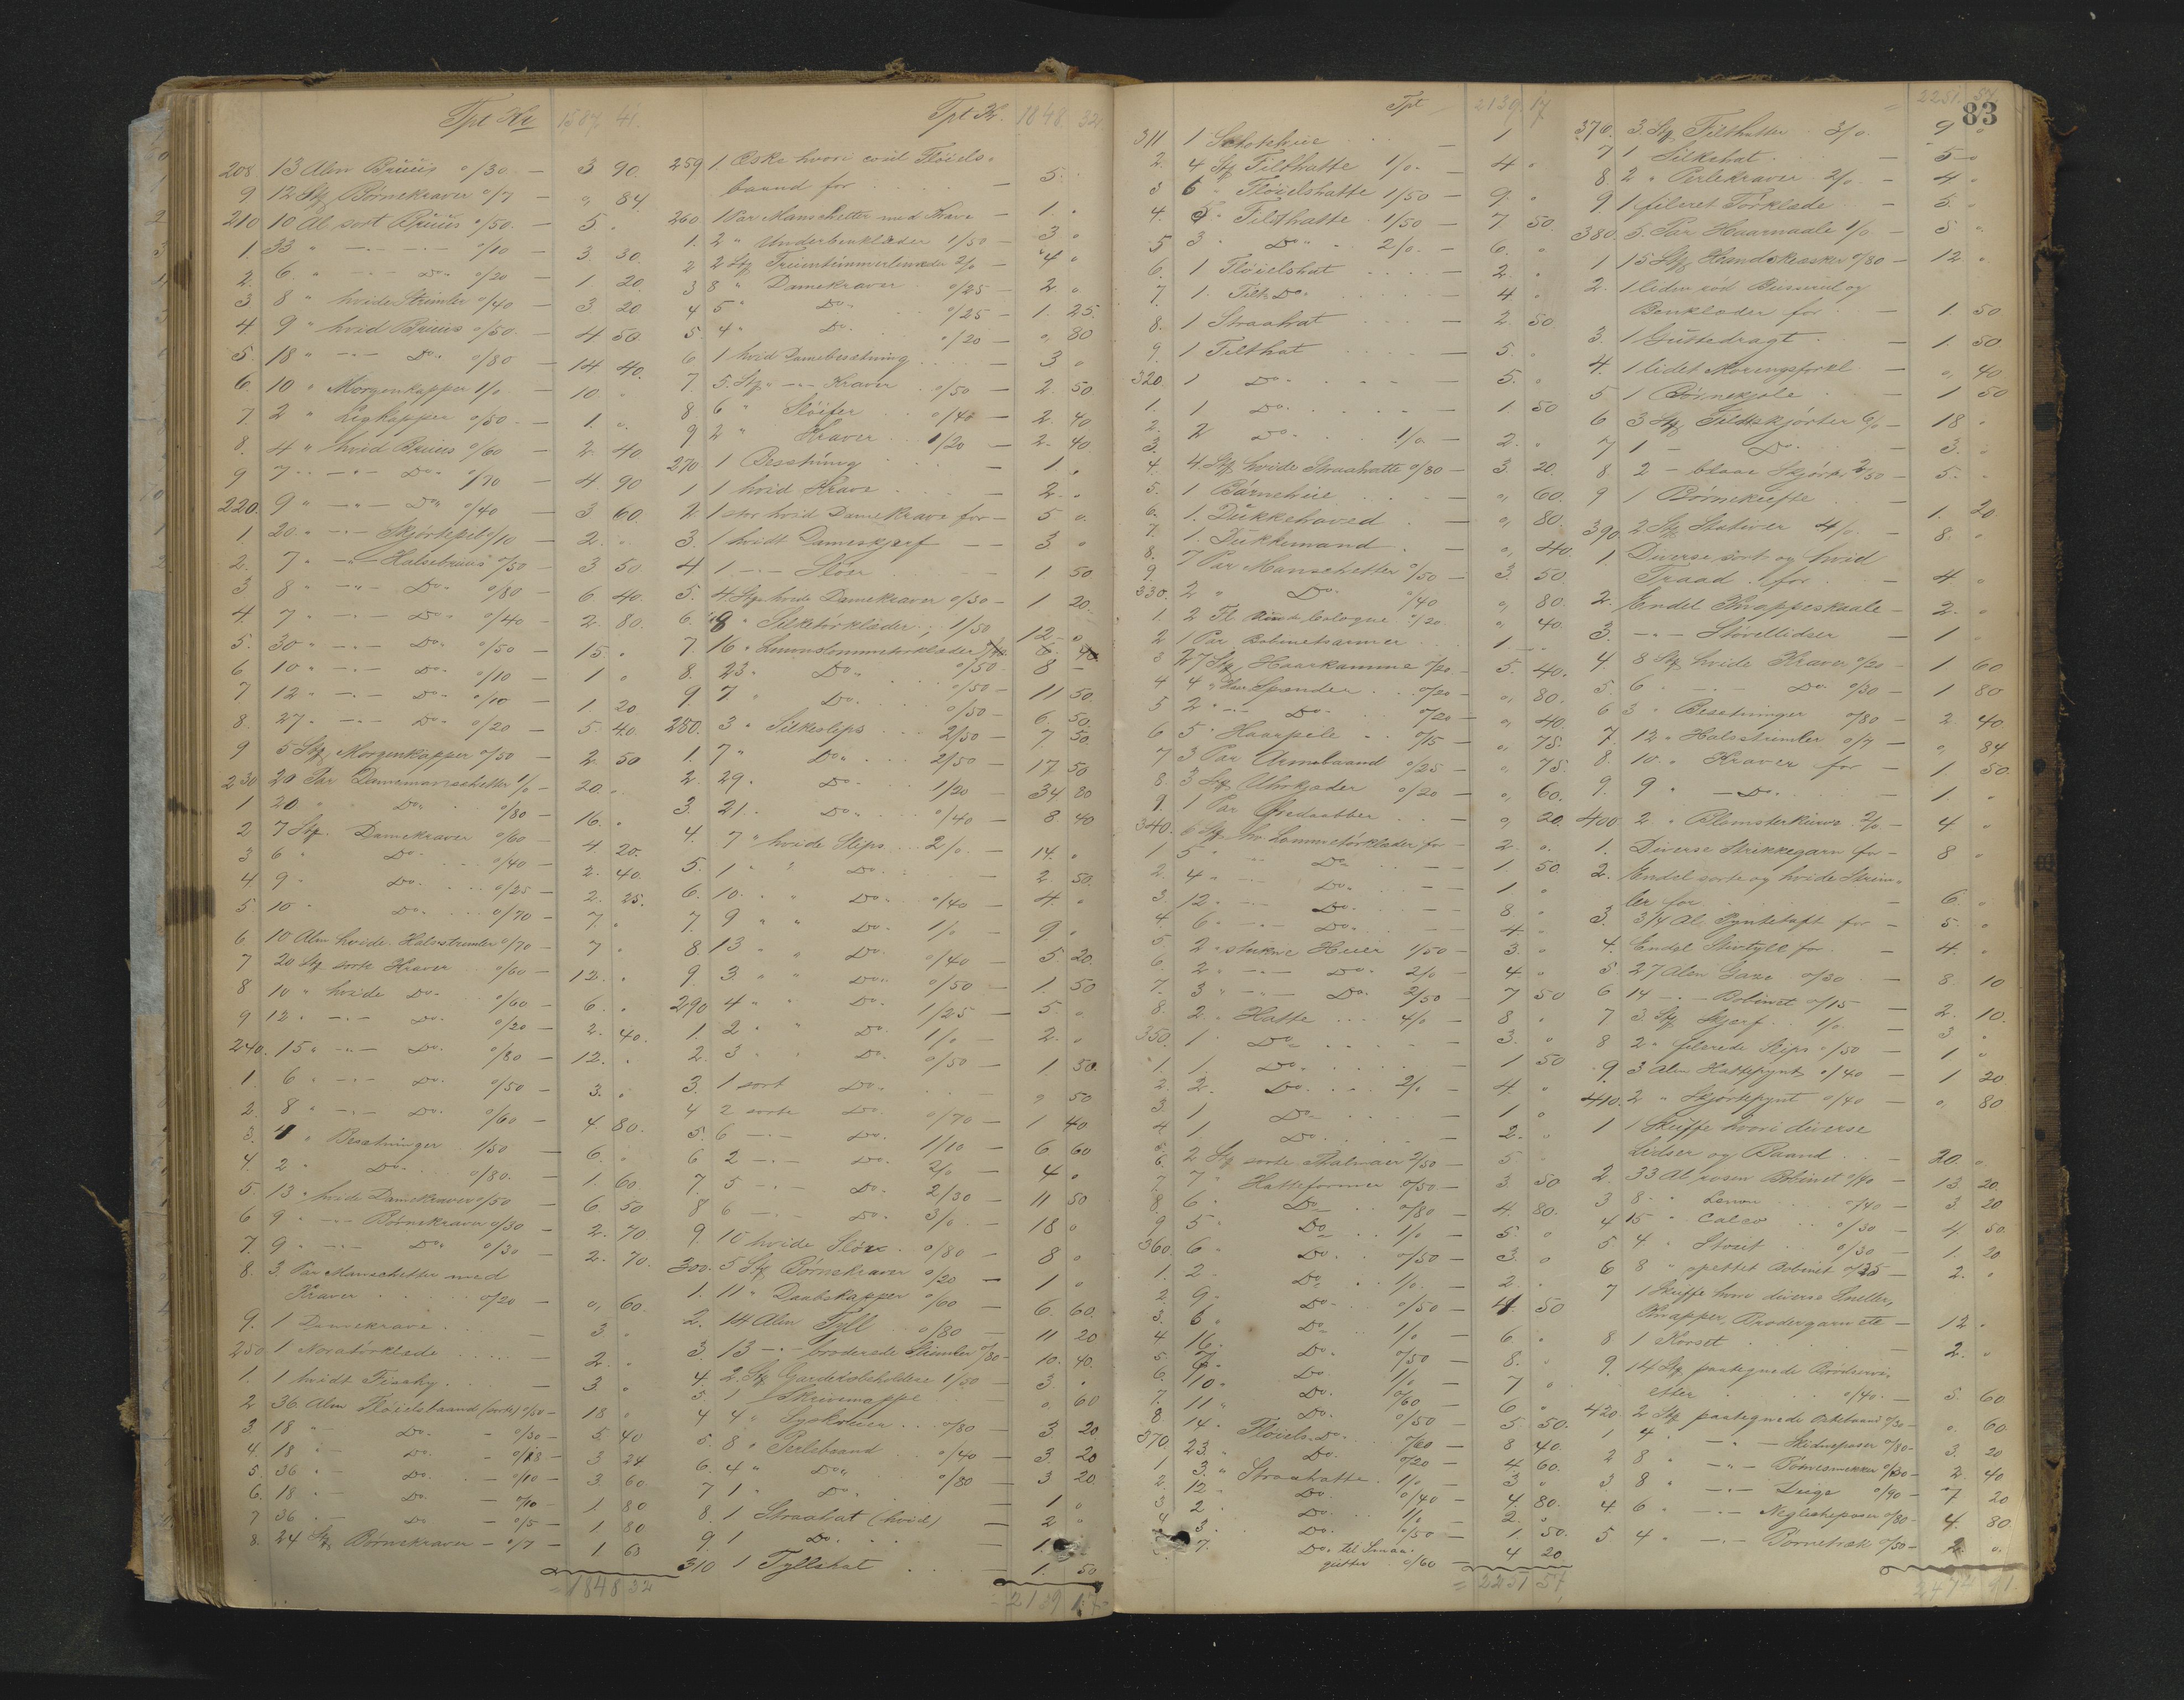 Tpt Kr 1587. 41.
208. 13 Alen Brüüs o/30 — 3 90.
9 12 Stk Børnekraver o/7 — " 84
210 10 Al sort Brüüs o/50. — 5 "
1. 33 " —"— —"— o/10 — 3. 30.
2. 6. " —"— Do. o/20 — 1 20.
3 8 " hvide Strimler o/40 — 3 20
4. 9 " hvid Brüüs o/50. — 4 50
5. 18 " —"— Do. o/80 — 14 40.
6. 10 " Morgenkapper 1/o. — 10 "
7 2 " Ligkapper o/50 — 1. "
8. 4 " hvid Brüüs o/60 — 2 40
9 7 " —"— Do. o/70 — 4 90
220. 9 " —"— Do. o/40 — 3 60.
1 20 " —"— o/10 — 2. "
2. 7 " —"— Halsebrüüs o/50 — 3 50
3 8 " —"— Do. o/80 — 6. 40.
4. 7 " —"— Do. o/40 — 2. 80.
5. 30 " —"— Do. o/50 — 15. "
6. 10 " —"— Do. o/10 — 1 "
7 12 " —"— Do. o/10 — 1 20
8. 27 " —"— Do. o/20 — 5. 40.
9 5 Stk Morgenkapper o/50 — 2 50
230 20 Par Damemanschetter 1/o — 20. "
1 20 " Do. o/80 — 16. "
2 7 Stk. Damekraver o/60 — 4 20.
3 6 " Do. o/40 — 2. 40.
4 9 " Do. o/25 — 2. 25.
5. 10 " Do. o/70 — 7. "
6. 10 Alen hvide Halsstrimler o/70 — 7 "
7 20 Stk sorte Kraver o/60 — 12. "
8 10 " hvide Do. o/60 — 6. "
9 12 " —"— Do. o/20 — 2. 40.
240. 15 " —"— Do. o/80 — 12. "
1. 6 " —"— Do. o/50 — 3. "
2. 8 " —"— Do. o/60 — 4 80.
3. 4 " Besætninger 1/50 — 6. "
4. 2 " Do. o/80. — 1. 60.
5. 13 " hvide Damekraver o/50 — 6. 50
6 9 " —"— Børnekraver o/30 — 2. 70.
7. 9 " —"— Do. o/30 — 2. 70.
8. 3. Par Manschetter med
Kraver o/20 — " 60.
9. 1 Damekrave — 3 "
250 1 — 2. "
1. 1 hvidt — 3. "
2 36 Alen Fløielsbaand (sorte) o/50 — 18 "
3. 18 " Do. o/30 — 5 40
4. 18 " Do. o/18 — 3 24
5. 36 " Do. o/10 — 3. 60.
6. 18 " Do. o/10 — 1 80
7 36 " Do. o/5 — 1 80
8. 24 Stk Børnekraver o/7 — 1 68
= 1848 32
Tpt Kr. 1848. 32
259 1. Æske hvori coul Fløiels-
baand for — 5.
260 1 Par Manschetter med Krave — 1. "
1. 2 " Underbenklæder 1/50 — 3 "
2 2 Stk 2/o — 4 "
3 8 " Damekraver o/25 — 2 "
4 5 " Do. o/25 — 1. 25.
5. 4 " Do. o/20 — " 80
6 1 hvid Damebesætning — 3 "
7. 5 Stk —"— Kraver o/50 — 2. 50
8. 6 " Sløifer o/40 — 2. 40
9 2 " Kraver 1/20 — 2. 40
270 1 Besætning — 1 "
1 1 hvid Krave — 2. "
2 1 stor hvid Damekrave for — 5 "
3. 1 hvidt Dameskjerf — 3 "
4 1 —"— Slør — 1. 50
5. 4 Stk hvide Damekraver o/30 — 1 20.
6. 8 " Silketørklæder 1/50 12. "
7. 16 "
8. 23 " Do. o/50 — 11 50
9. 7 " Do. o/50 — 6. 50.
280. 3 " Silkeslips 2/50 — 7 50.
1. 7 " Do. 2/50 — 17. 50
2. 29 " Do. 1/20 — 34. 80
3. 21 " Do. o/40 — 8 40
4. 7 " hvide Slips 2/o. — 14. "
5. 1 " Do. — 2. 50.
6. 10 " Do. o/40 — 4. "
7. 9 " Do. 1/o — 9. "
8. 13 " Do. o/40 — 5 20.
9. 3 " Do. o/50 — 1. 50
290 4 " Do. 1/25 — 5. "
1. 2 " Do. 1/o — 2. "
2. 3 " Do. o/50 — 1. 50.
3. 1 sort Do. — " 50
4 2 sorte Do. o/70 — 1 40
5. 6 —"— Do. 1/10 — 6 60
6 2 —"— Do. 2/o — 4 "
7. 5 —"— Do. 2/30 — 11 50
8 6 —"— Do. 3/o. — 18 "
9. 10 hvide Slør o/80 — 8 "
300. 5 Stk Børnekraver o/20 — 1 "
1. 11 " Daabskapper o/60 — 6. 60.
2. 14 Alen Tyll o/80 — 11 20
3. 13 —"— broderede Strimler o/80 — 10. 40.
4. 2. Stk Garderobeholdere 1/50 — 3. "
5. 1 Skrivemappe — " 60
4 4 " o/80 — 3 20
5. 8 " Perlebaand o/40 — 3. 20
6. 4 " Do. o/80 — 3 20
7 1 " Do. — 1 "
8. 1 Straahat (hvid) — 2 "
9. 1 Do. — 1.
310 1 Tyllshat — 1. 50
= 2139 17
Tpt 2139. 17
311 1 — 1 "
2. 4 Stk Filthatte 1/o. — 4 "
3 6 " Fløielshatte 1/50 — 9. "
4. 5 " Filthatte 1/50 — 7. 50.
5 3 " Do. 2/o. — 6. "
6. 1 Fløielshat — 2. "
7. 1. Filt Do. — 4 "
8. 1 Straahat — 2 50.
9. 1 Filthat — 5. "
320. 1 Do. — 5. "
1. 1 Do. — 1. 50
2. 2 Do. 1/o. — 2. "
4. 4 Stk hvide Straahatte o/80 — 3. 20.
5. 1 Barnehue — " 60.
6. 1. Dukkehoved — " 80.
7. 1. Dukkemand — " 40.
8. 7 Par Manschetter o/50 — 3. 50.
330. 2 " Do. o/40 " 80.
1. 2 Fl Cologne o/20. " 40.
2 1 Par Bobinetsærmer 1.
3 27 Stk Haarkamme o/20 — 5. 40.
4 4 " Spænder o/20 — " 80.
5 2 " —"— Do. o/20 — " 40.
6 5 " Haarpile o/15 — " 75.
7 3 Par Armbaand o/25 — " 75.
8. 3 Stk Uhrkjæder o/20 — " 60.
9. 1 Par — " 20.
340. 6 Stk hv. Lommetørklæder for — 2. "
1 5 " Do. — 1 50.
2. 4 " Do. — 1 "
3 12 " Do. — 8. "
4. 6 " Do. — 4. "
5. 2 " Huer 1/50 — 3. "
6. 2 " —"— Do. 2/o — 4. "
7. 3 " —"— Do. 2/50 — 7 50
8. 2. " Hatte 4/o — 8 "
350. 1 Do. — 3. "
1. 1. Do. — 1 50
2. 2. Do. 2/o — 4. "
3. 1 Do. — 1 "
4 1 Do. — 2. "
6. 2 Stk sorte 2/50 — 5 "
7. 7 " Hatteformer o/50 — 3. 50
8. 6 " Do. o/80 — 4. 80.
9 5 " Do. 1/o — 5. "
360. 6 " Do. o/50 — 3. "
1. 2 Do. 1/o. — 2. "
2. 9 " Do. o/50 — 4. 50
3. 6 " Do. 1/o — 6. "
4 16. Do. o/50 — 8. "
5. 7 Do. 1/o — 7 "
6. 10 " Do. o/60 — 6 "
7. 11 " Do. o/50 — 5 50.
8. 14 " Fløiels Do. o/60 — 8 40.
370. 23 " Do. o/20 — 4 60.
1 3. " Straahatte 1/o — 3 "
2. 12 " Do. o/40 — 4. 80.
3 2 " Do. 1/o — 2. "
4 3. Do. o/50 — 1. 50.
7. Do. til Smaa-
gutter o/60 — 4 20
= 2251 57
= 2251. 57
83
376. 3. Stk Filthatter 3/o. — 9 "
7 1 Silkehat — 5 "
8. 2 " Perlekraver 2/o. — 4 "
9. 1 fileret Tørklæde — 5. "
380. 5. Par Haarnaale 1/o — 5 "
1 15 Stk Handskeæsker o/80 — 12 "
2. 1 liden rød Busserul og
Benklæder for — 1. 50
3. 1 Guttedragt — 1. 50
4. 1 lidet — " 40
5 1 Børnekjole — 1 50
6 3 Stk Filtskjørter 6/o — 18 "
7 1 — Do. — 3. "
8 2 — blaae Skjørter 2/50 — 5. "
9 1 Børnekufte — 1. 20
390. 2 Stk Stativer 4/o. — 8. "
1. Diverse sort og hvid
Traad for — 4 "
2. Endel Knappeskaale — 2. "
3. —"— Støvellidser — 1 "
4 8 Stk hvide Kraver o/20 — 1 60
5. 6 " —"— Do. o/30 — 1 80
6 3 " Besætninger o/80 — 2 40
7. 12 " Halsstrimler o/7 — " 84
8. 10. " Kraver for — 1 50.
9. 9 " — Do. — 1. "
400. 2. " Blomsterkurve 2/o — 4 "
1. Diverse Strikkegarn for — 8 "
2. Endel sorte og hvide Strim-
ler for — 6. "
3. 3/4 Al. Pyntetaft for — 5 "
4. Endel Stivtyll for — 4. "
5. 27 Alen Gaze o/30 — 8. 10
6 14 —"— Bobinet o/15 — 2. 10.
7 3. Stk Skjerf 1/o. — 3 "
8 2 " filerede Slips o/50 — 1 "
9. 3 Alen Hattepynt o/40 — 1 20
410. 2 " Skjørtepynt o/40 — " 80
1 1 Skuffe hvori diverse
Lidser og Baand — 20. "
2. 33 Al rosen Bobinet o/40 — 13 20.
3 8 " o/40 — 3. 20
4 15 " Calco o/30 — 4. 50.
5 4 " Stout o/30 — 1. 20
6 8 " spettet Bobinet o/25 — 2. "
7 1 Skuffe hvori diverse Sneller,
Knapper, Brodergarn etc — 12. "
8 1 Korset — 2. "
9. 14 Stk paategnede
o/40. — 5. 60
420. 2 Stk paategnede o/30 — " 60.
1 4 " —"— o/80 — 3. 20
2 8 " —"— o/30 — 2. 40
3. 8 " —"— Duge o/90 — 7 20
4. 6 " —"— Neglicheposer o/80 — 4. 80.
5 4 " —"— o/50 — 2. "
2472 91.